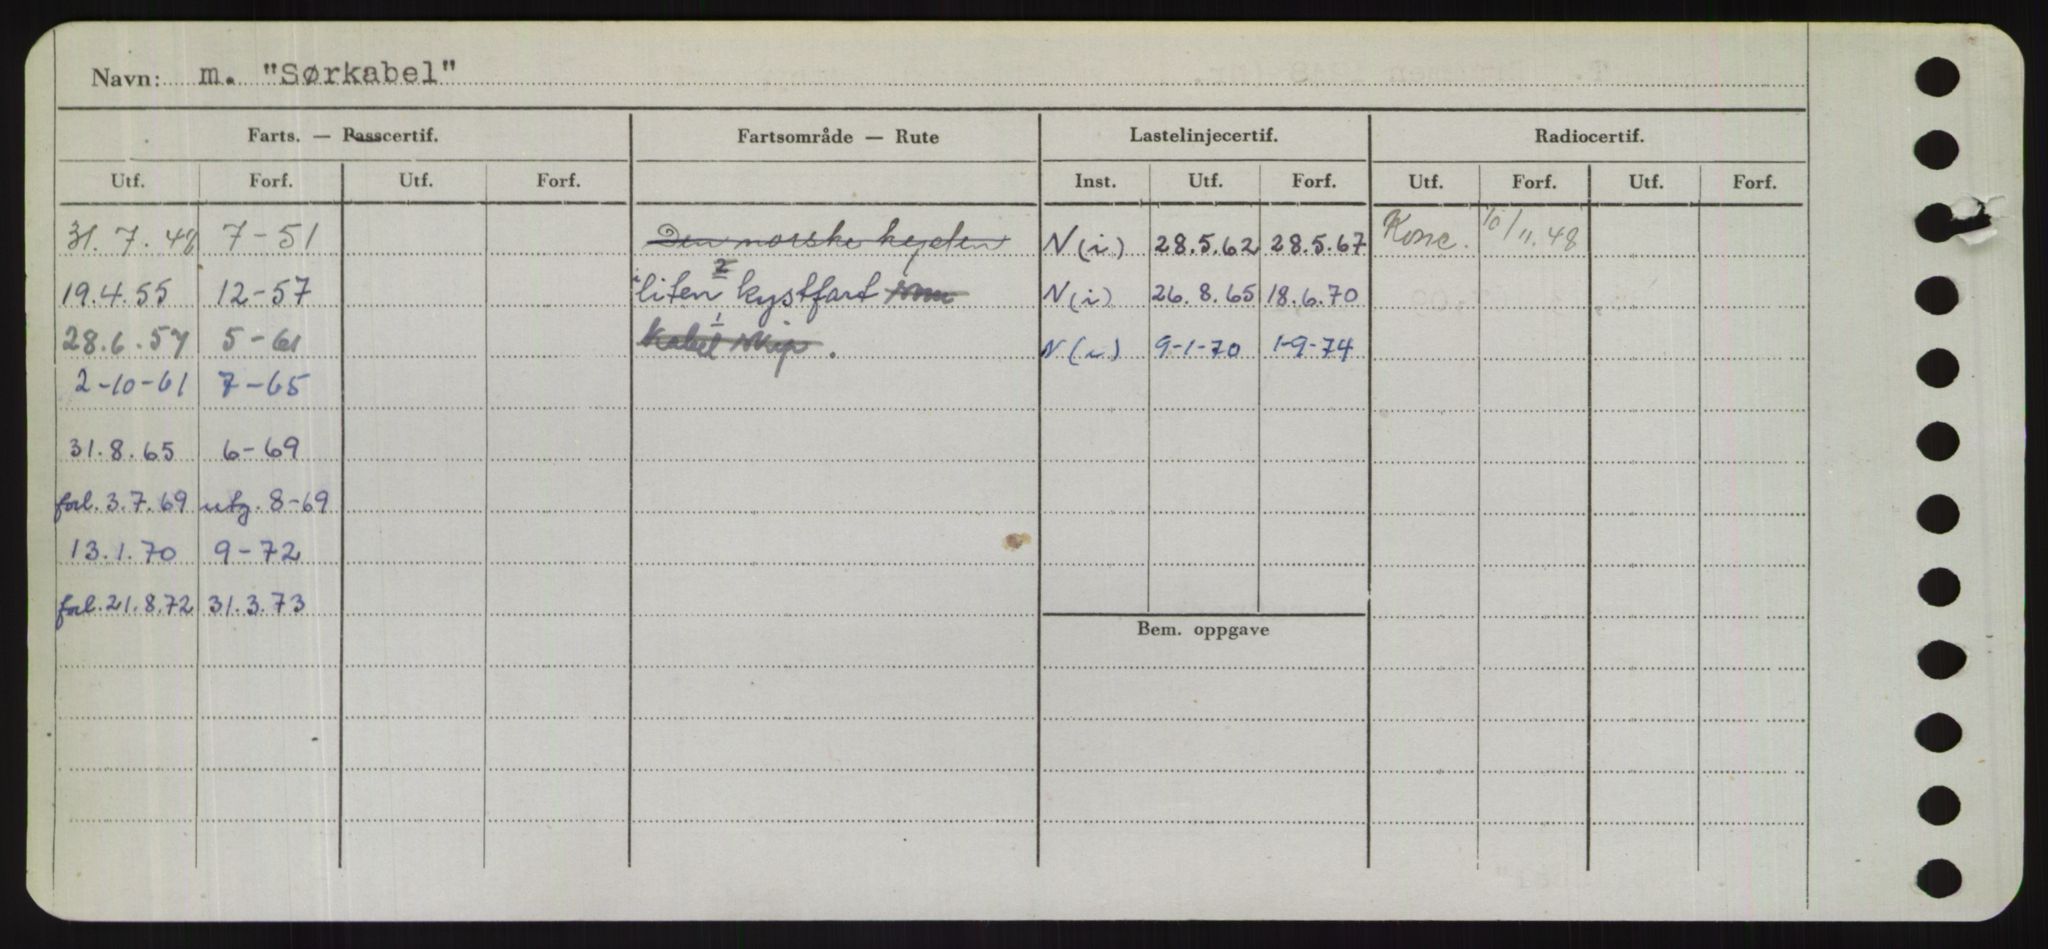 Navn: m. "Sørkabel"
Farts. — Passcertif. Fartsområde — Rute Lastelinjecertif. Radiocertif.
Utf. Forf. Utf. Forf. Inst. Utf. Forf. Utf. Forf. Utf. Forf.
31. 7. 48 7-51 Den norske kysten N (i) 28.5.62 28.5.67 Konc. 10/11.48
19.4.55 12-57 liten 2 kystfart som N (i) 26.8.65 18.6.70
28.6.57 5-61 kabel skip. N (i) 9-1-70 1-9-74
2-10-61 7-65
31.8.65 6-69
forl. 3.7.69 utg. 8-69
13.1.70 9-72
forl. 21.8.72 31.3.73
Bem. oppgave